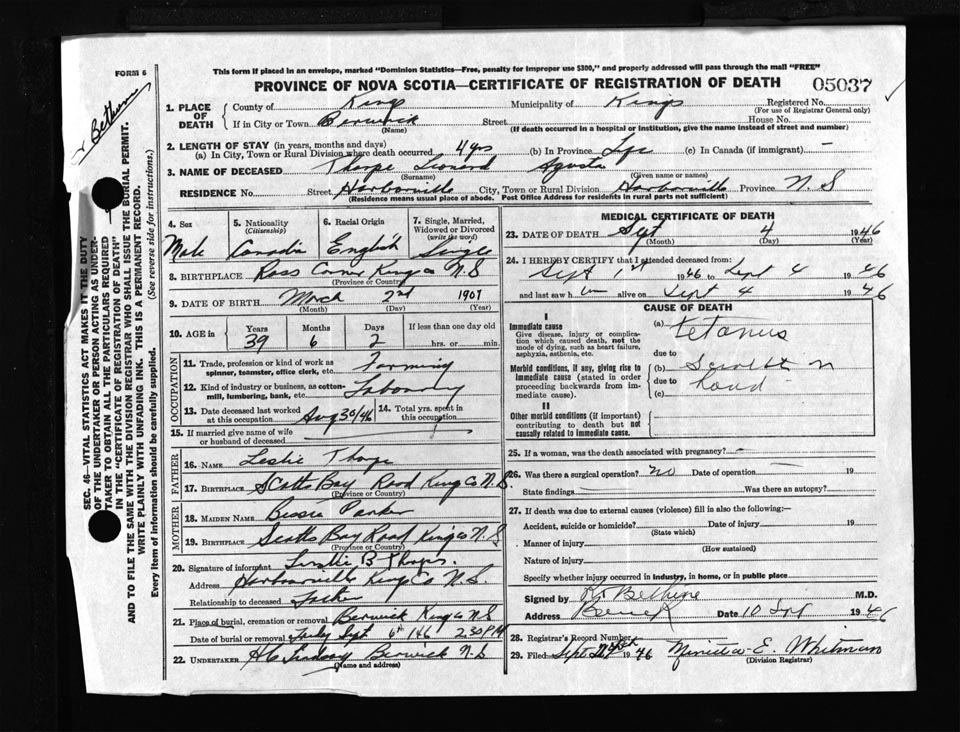 FORM 6
This form if placed in an envelope, marked "Dominion Statistics—Free, penalty for improper use $300," and properly addressed will pass through the mail "FREE"
PROVINCE OF NOVA SCOTIA—CERTIFICATE OF REGISTRATION OF DEATH
05037
1. PLACE OF DEATH County of Kings Municipality of Kings Registered No.
(For use of Registrar General only)
If in City or Town Berwick Street House No.
(Name) (If death occurred in a hospital or institution, give the name instead of street and number)
2. LENGTH OF STAY (in years, months and days)
(a) In City, Town or Rural Division where death occurred 4 yrs (b) in Province Life (c) In Canada (if immigrant) —
3. NAME OF DECEASED Thorpe Leonard
(Surname) (Given name or names)
RESIDENCE No. Street Harborville City, Town or Rural Division Harborville Province N. S
(Residence means usual place of abode. Post Office Address for residents in rural parts not sufficient)
4. Sex 5. Nationality 6. Racial Origin 7. Single, Married, Widowed or Divorced
(Citizenship) (write the word)
Male Canadian English Single
8. BIRTHPLACE Ross Corner Kings Co N. S
(Province or Country)
9. DATE OF BIRTH March 2nd 1907
(Month) (Day) (Year)
10. AGE in Years Months Days If less than one day old
39 6 2 hrs. or min.
OCCUPATION
11. Trade, profession or kind of work as spinner, teamster, office clerk, etc. Farming
12. Kind of industry or business, as cotton-mill, lumbering, bank, etc. Labouring
13. Date deceased last worked at this occupation Aug 30/46 14. Total yrs. spent in this occupation
15. If married give name of wife or husband of deceased
FATHER
16. NAME Leslie Thorpe
17. BIRTHPLACE Scotts Bay Road Kings Co N. S.
(Province or Country)
MOTHER
18. MAIDEN NAME Bessie Parker
19. BIRTHPLACE Scotts Bay Road Kings Co N. S
(Province or Country)
20. Signature of informant B Thorpe
Address Harbourville Kings Co N. S.
Relationship to deceased Father
21. Place of burial, cremation or removal Berwick Kings Co N S
Date of burial or removal Sept 6th 46 2 30 P M
22. UNDERTAKER Lindsay Berwick N. S
(Name and address)
MEDICAL CERTIFICATE OF DEATH
23. DATE OF DEATH Sept 4 1946
(Month) (Day) (Year)
24. I HEREBY CERTIFY that I attended deceased from:
Sept 1st 1946 to Sept 4 1946
and last saw h im alive on Sept 4 1946
CAUSE OF DEATH
I
Immediate cause
Give disease, injury or complication which caused death, not the mode of dying, such as heart failure, asphyxia, asthenia, etc.
(a) Tetanus
due to
Morbid conditions, if any, giving rise to immediate cause (stated in order proceeding backwards from immediate cause).
(b)
due to
(c)
II
Other morbid conditions (if important) contributing to death but not causally related to immediate cause.
25. If a woman, was the death associated with pregnancy? —
26. Was there a surgical operation? no Date of operation — 19
State findings Was there an autopsy?
27. If death was due to external causes (violence) fill in also the following:—
Accident, suicide or homicide? Date of injury 19
(State which)
Manner of injury
(How sustained)
Nature of injury
Specify whether injury occurred in industry, in home, or in public place
Signed by Bethune M.D.
Address Berwick Date 10 Sept 1946
28. Registrar's Record Number
29. Filed Sept 1946 E. Whitman
(Division Registrar)
Bethune
SEC. 46—VITAL STATISTICS ACT MAKES IT THE DUTY
OF THE UNDERTAKER OR PERSON ACTING AS UNDER-
TAKER TO OBTAIN ALL THE PARTICULARS REQUIRED
IN THE "CERTIFICATE OF REGISTRATION OF DEATH"
AND TO FILE THE SAME WITH THE DIVISION REGISTRAR WHO SHALL ISSUE THE BURIAL PERMIT.
WRITE PLAINLY WITH UNFADING INK. THIS IS A PERMANENT RECORD.
Every item of information should be carefully supplied. (See reverse side for instructions.)